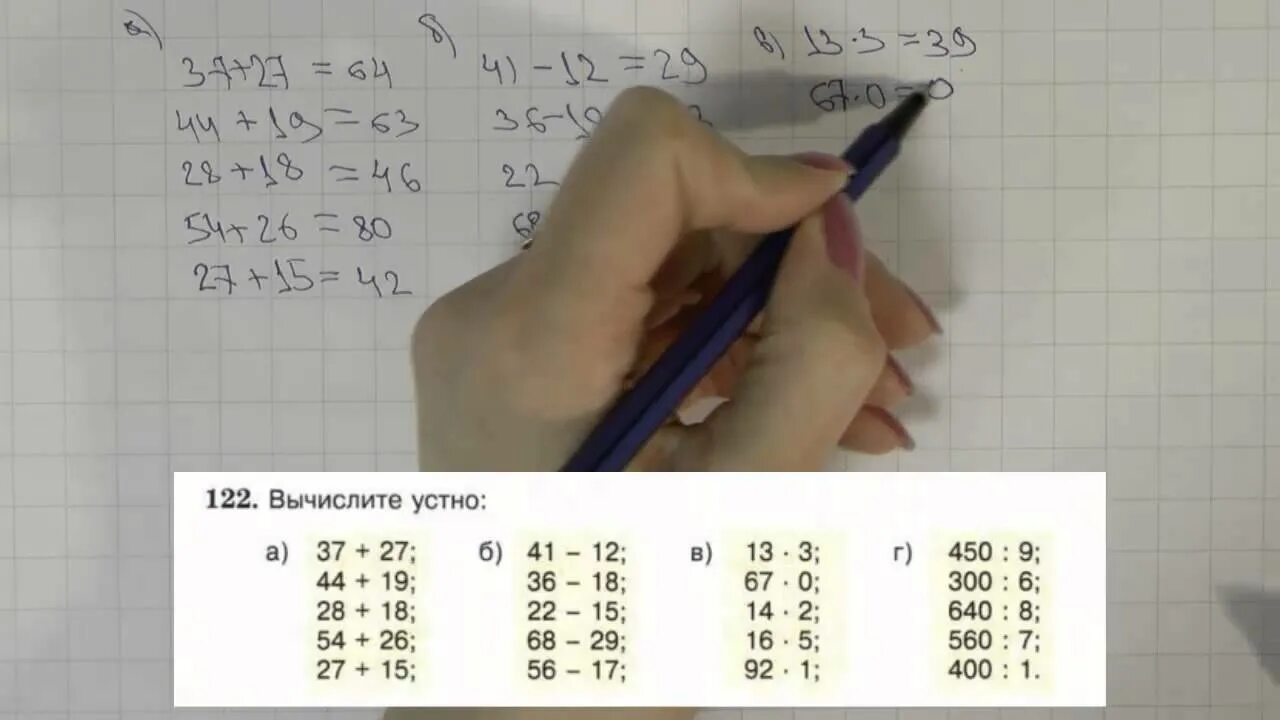 а)
37+27 = 64
44 + 19 = 63
28 + 18 = 46
54 + 26 = 80
27 + 15 = 42
б)
41 - 12 = 29
36-1
22
68
в) 13·3 = 39
67·0 = 0
122. Вычислите устно:
а) 37 + 27;
44 + 19;
28 + 18;
54 + 26;
27 + 15;
б) 41 – 12;
36 – 18;
22 – 15;
68 – 29;
56 – 17;
в) 13 · 3;
67 · 0;
14 · 2;
16 · 5;
92 · 1;
г) 450 : 9;
300 : 6;
640 : 8;
560 : 7;
400 : 1.